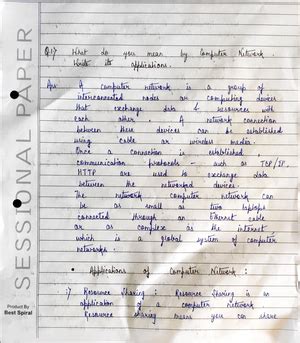 SESSIONAL PAPER
Product By
Best Spiral
Q.1) What do you mean by Computer Network.
Write its applications.
Ans A computer network is a group of
interconnected nodes or computing devices
that exchange data & resources with
each other. A network connection
between these devices can be established
using cable or wireless media.
Once a connection is established
communication protocols - such as TCP/IP,
HTTP are used to exchange data
between the networked devices.
The network computer network can
be as small as two laptops
connected through an Ethernet cable
or as complex as the internet
which is a global system of computer
networks.
• Applications of Computer Network :
:) Resource Sharing : Resource Sharing is an
application of a computer network
Resource sharing means you can share